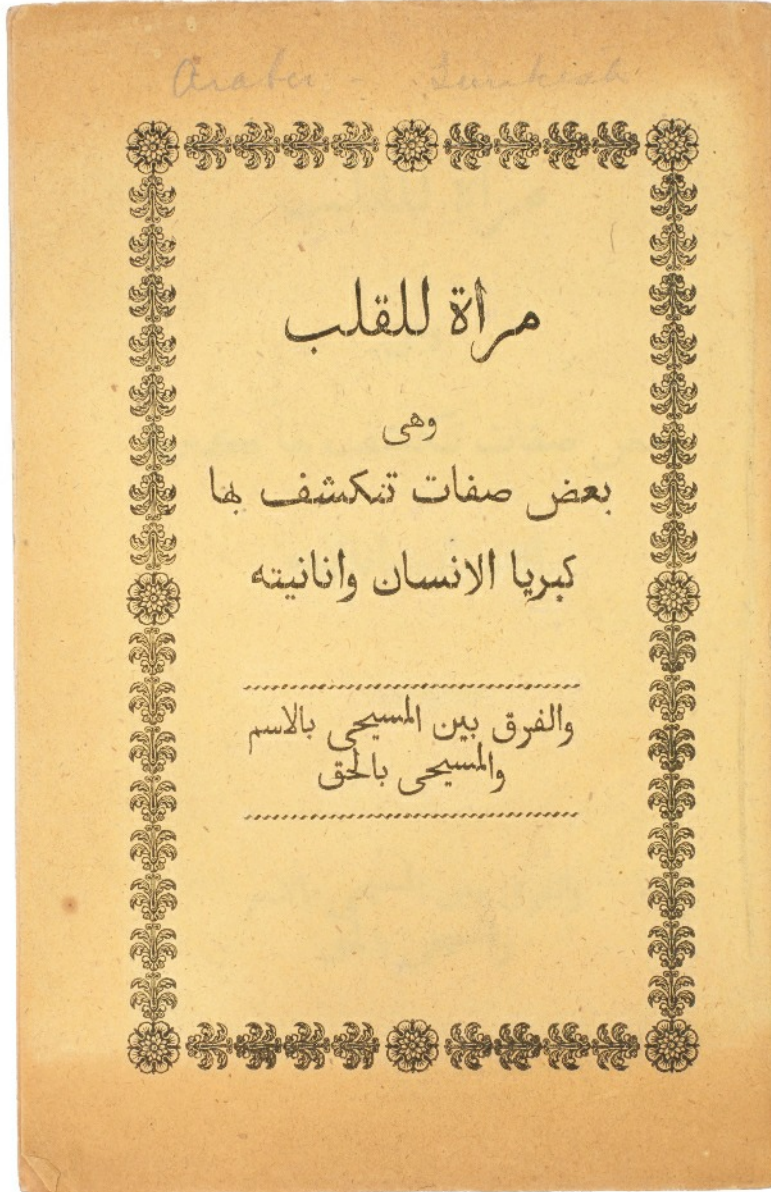 مرأة للقلب
وهى
بعض صفات تنكشف بها
كبريا الانسان وانانيته
والفرق بين المسيحى بالاسم
والمسيحى بالحق